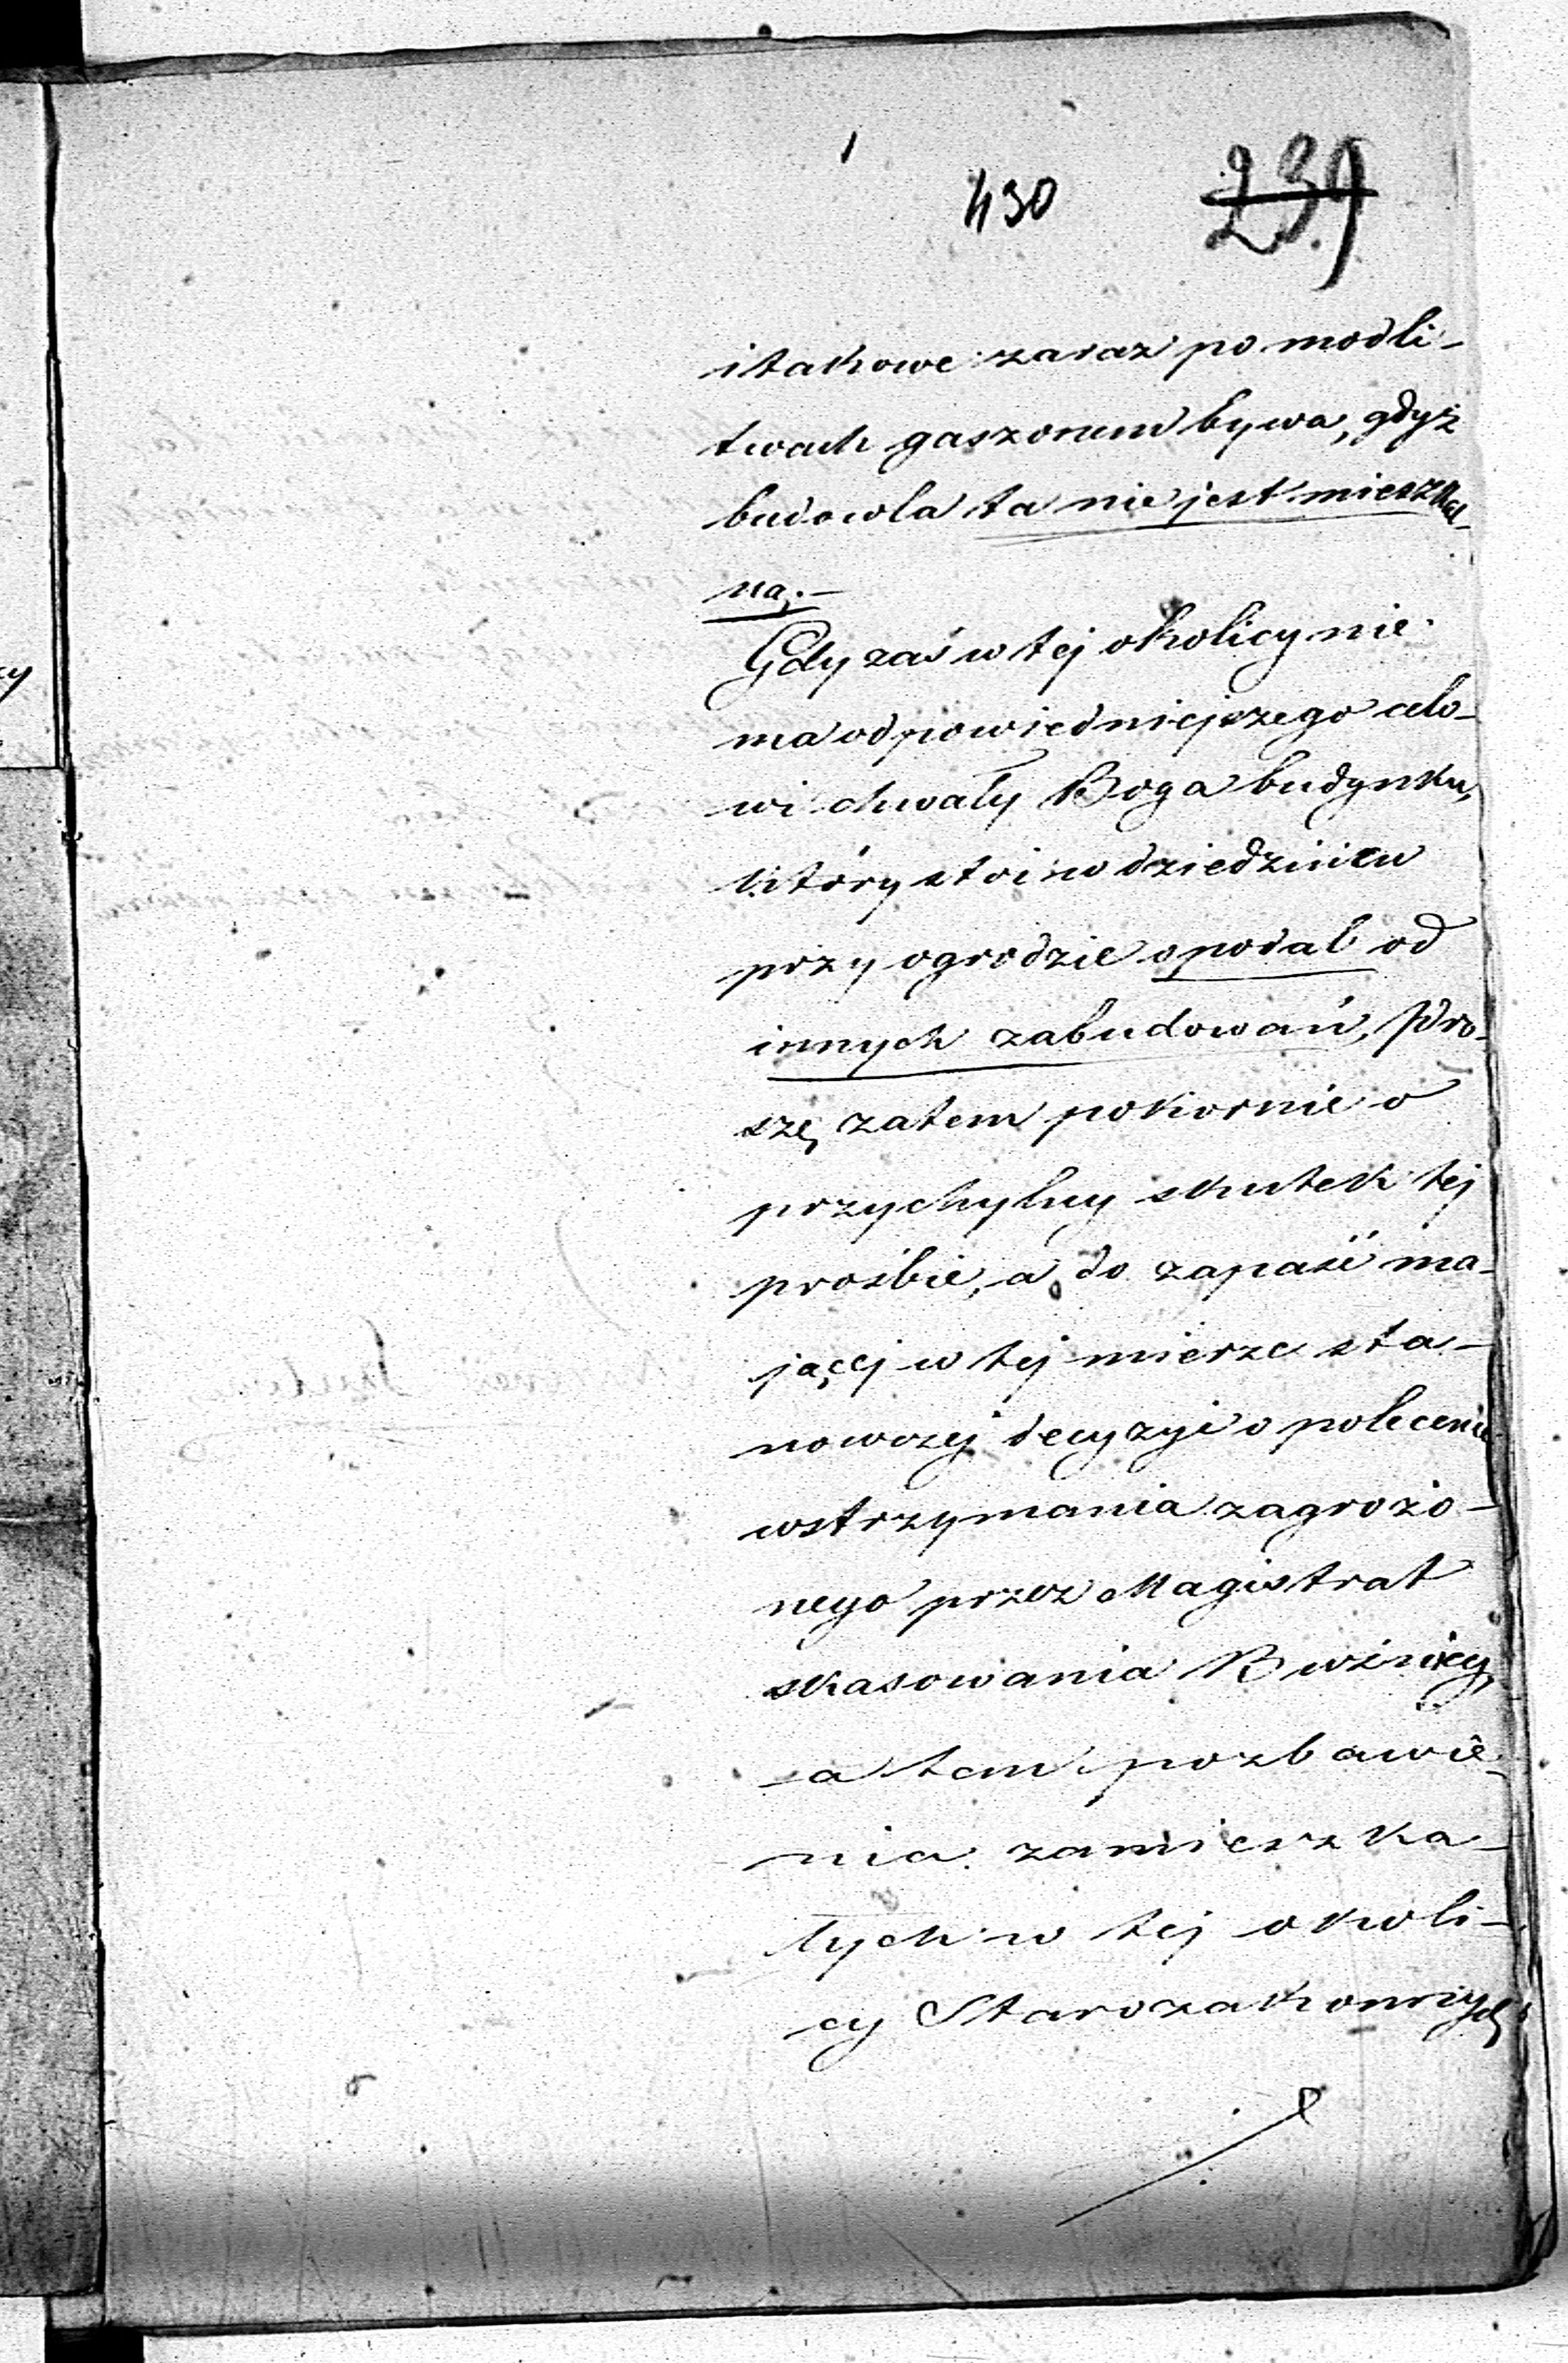 430 239
i takowe zaraz po modli-
twach gaszonem bywa, gdyż
budowla ta nie jest mieszkal-
ną.-
Gdy zaś w tej okolicy nie
ma odpowiedniejszego celo-
wi chwały Boga budynku,
który stoi w dziedzińcu
przy ogrodzie opodal od
innych zabudowań, pro-
szę zatem pokornie o
przychylny skutek tej
prośbie, a do zapaść ma-
jącej w tej mierze sta-
nowczej decyzyi o polecenie
wstrzymania zagrożo-
nego przez Magistrat
skasowania Bużnicy,
a tem pozbawie-
nia zamieszka-
łych w tej okoli-
cy Starozakonnych